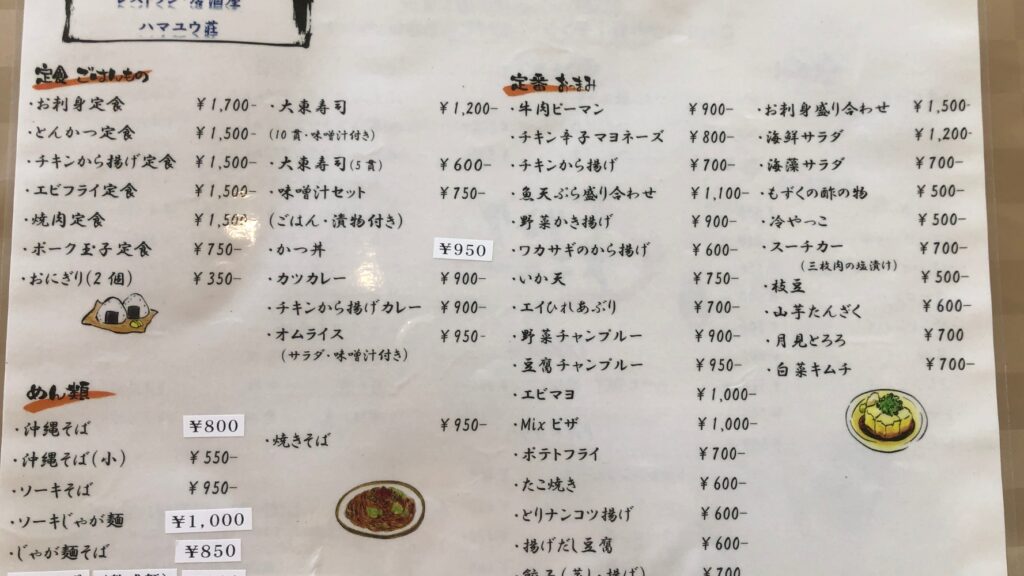 ハマユウ荘
定食 ごはんもの
・お刺身定食 ￥1,700-
・とんかつ定食 ￥1,500-
・チキンから揚げ定食 ￥1,500-
・エビフライ定食 ￥1,500-
・焼肉定食 ￥1,500-
・ポーク玉子定食 ￥750-
・おにぎり(2個) ￥350-
・大東寿司 ￥1,200-
(10貫・味噌汁付き)
・大東寿司(5貫) ￥600-
・味噌汁セット ￥750-
(ごはん・漬物付き)
・かつ丼 ￥950
・カツカレー ￥900-
・チキンから揚げカレー ￥900-
・オムライス ￥950-
(サラダ・味噌汁付き)
めん類
・沖縄そば ￥800
・沖縄そば(小) ￥550-
・ソーキそば ￥950-
・ソーキじゃが麺 ￥1,000
・じゃが麺そば ￥850
・焼きそば ￥950-
定番 おつまみ
・牛肉ピーマン ￥900-
・チキン辛子マヨネーズ ￥800-
・チキンから揚げ ￥700-
・魚天ぷら盛り合わせ ￥1,100-
・野菜かき揚げ ￥900-
・ワカサギのから揚げ ￥600-
・いか天 ￥750-
・エイひれあぶり ￥700-
・野菜チャンプルー ￥900-
・豆腐チャンプルー ￥950-
・エビマヨ ￥1,000-
・Mixピザ ￥1,000-
・ポテトフライ ￥700-
・たこ焼き ￥600-
・とりナンコツ揚げ ￥600-
・揚げだし豆腐 ￥600-
・餃子(蒸し・揚げ) ￥700
・お刺身盛り合わせ ￥1,500-
・海鮮サラダ ￥1,200-
・海藻サラダ ￥700-
・もずくの酢の物 ￥500-
・冷やっこ ￥500-
・スーチカー ￥700-
(三枚肉の塩漬け)
・枝豆 ￥500-
・山芋たんざく ￥600-
・月見とろろ ￥700
・白菜キムチ ￥700-